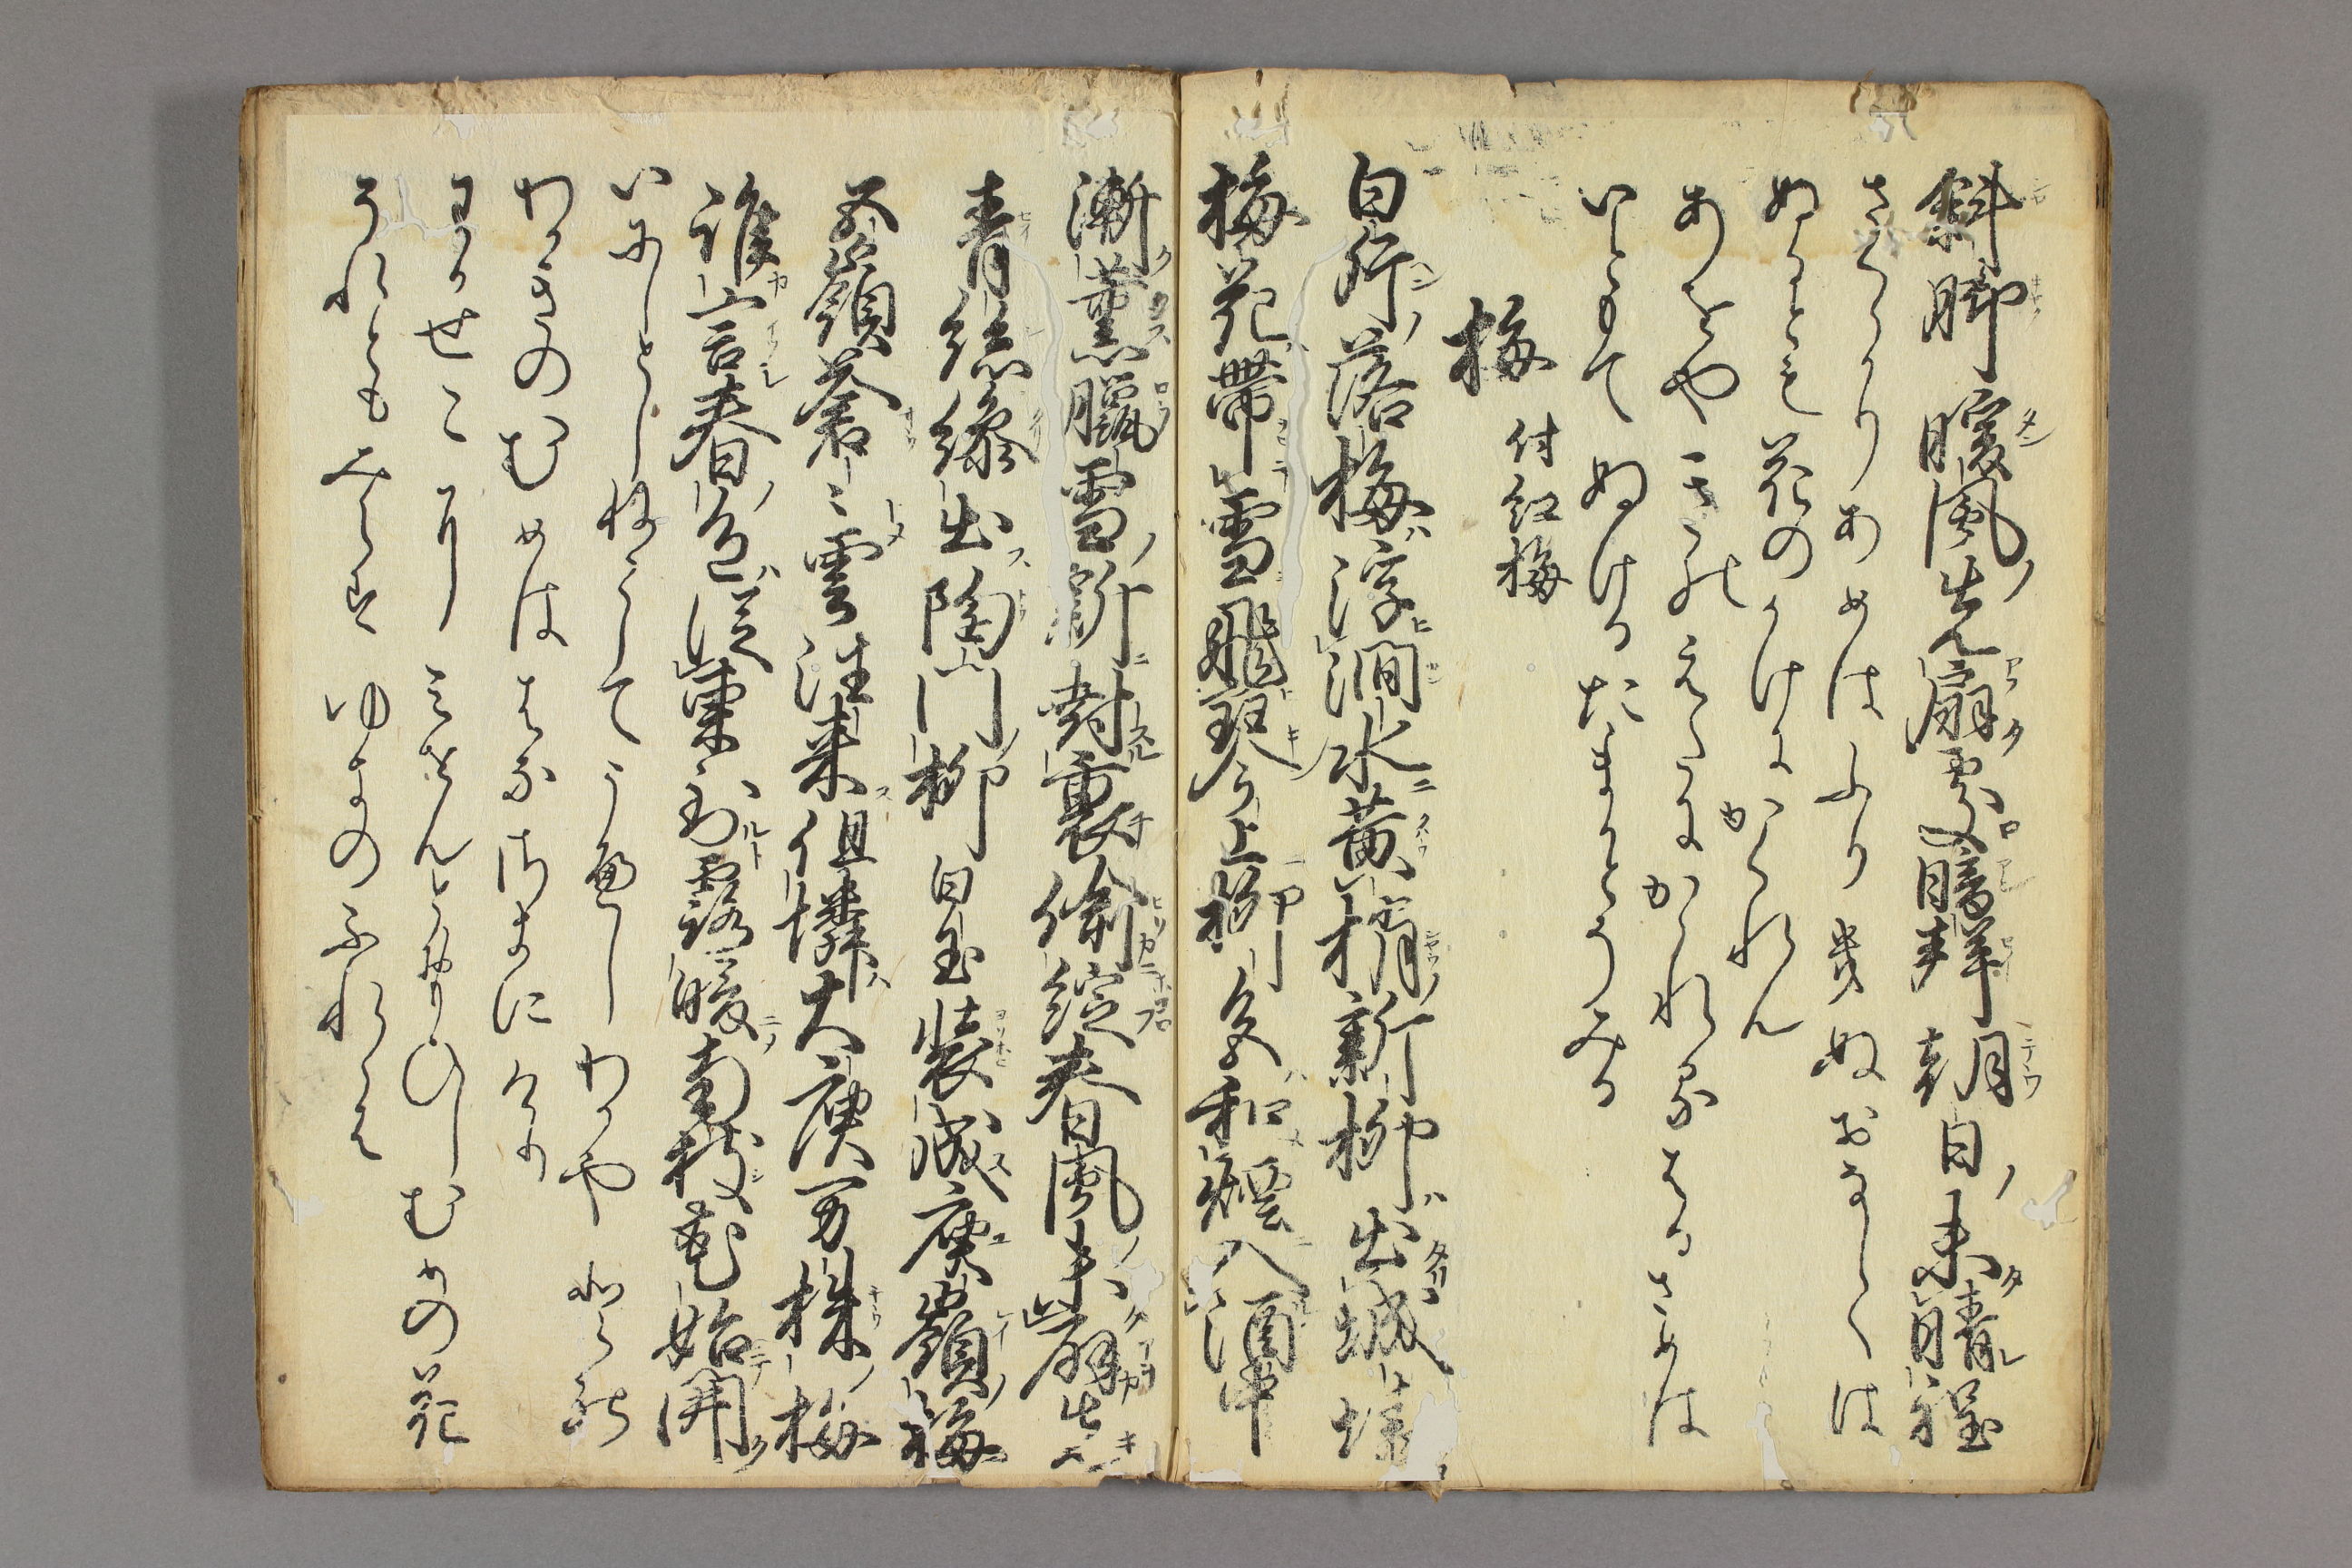 斜脚暖風先扇処暗声朝日未晴程
さくらかりあめはふりきぬおなしくは
ぬるとも花のかけにかくれん
あをやきのえたにかゝれるはるさめは
いともてぬけるたまかとそみる
梅 付紅梅
白片落梅浮澗水黄梢新柳出城墻
梅花帯雪飛琴上柳色和煙入酒中
漸薫臘雪新封裏偸綻春風未扇先
青糸繰出陶門柳白玉装成庾嶺梅
五嶺蒼々雲往来但憐大庾万株梅
誰言春色従東到露暖南枝花始開
いにしとしねこしてうゑしわかやとの
わかきのむめははなさきにけり
わかせこにみせんとおもひしむめの花
それともみえすゆきのふれゝは